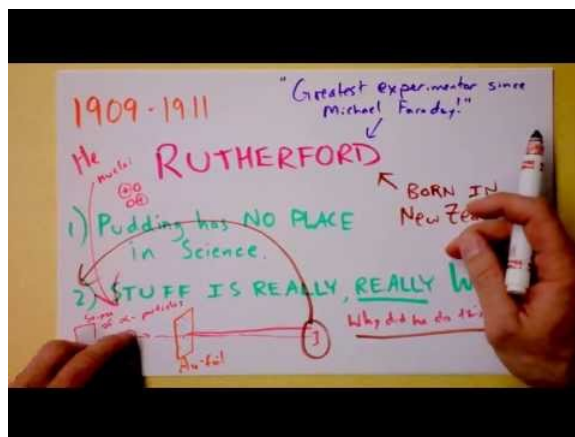 1909-1911
"Greatest experimentor since
Michael Faraday!"
He
nuclei
RUTHERFORD
BORN IN
New
1) Pudding has NO PLACE
in Science.
2) STUFF IS REALLY, REALLY
Source
of α-particles
Why did he do
Au-foil